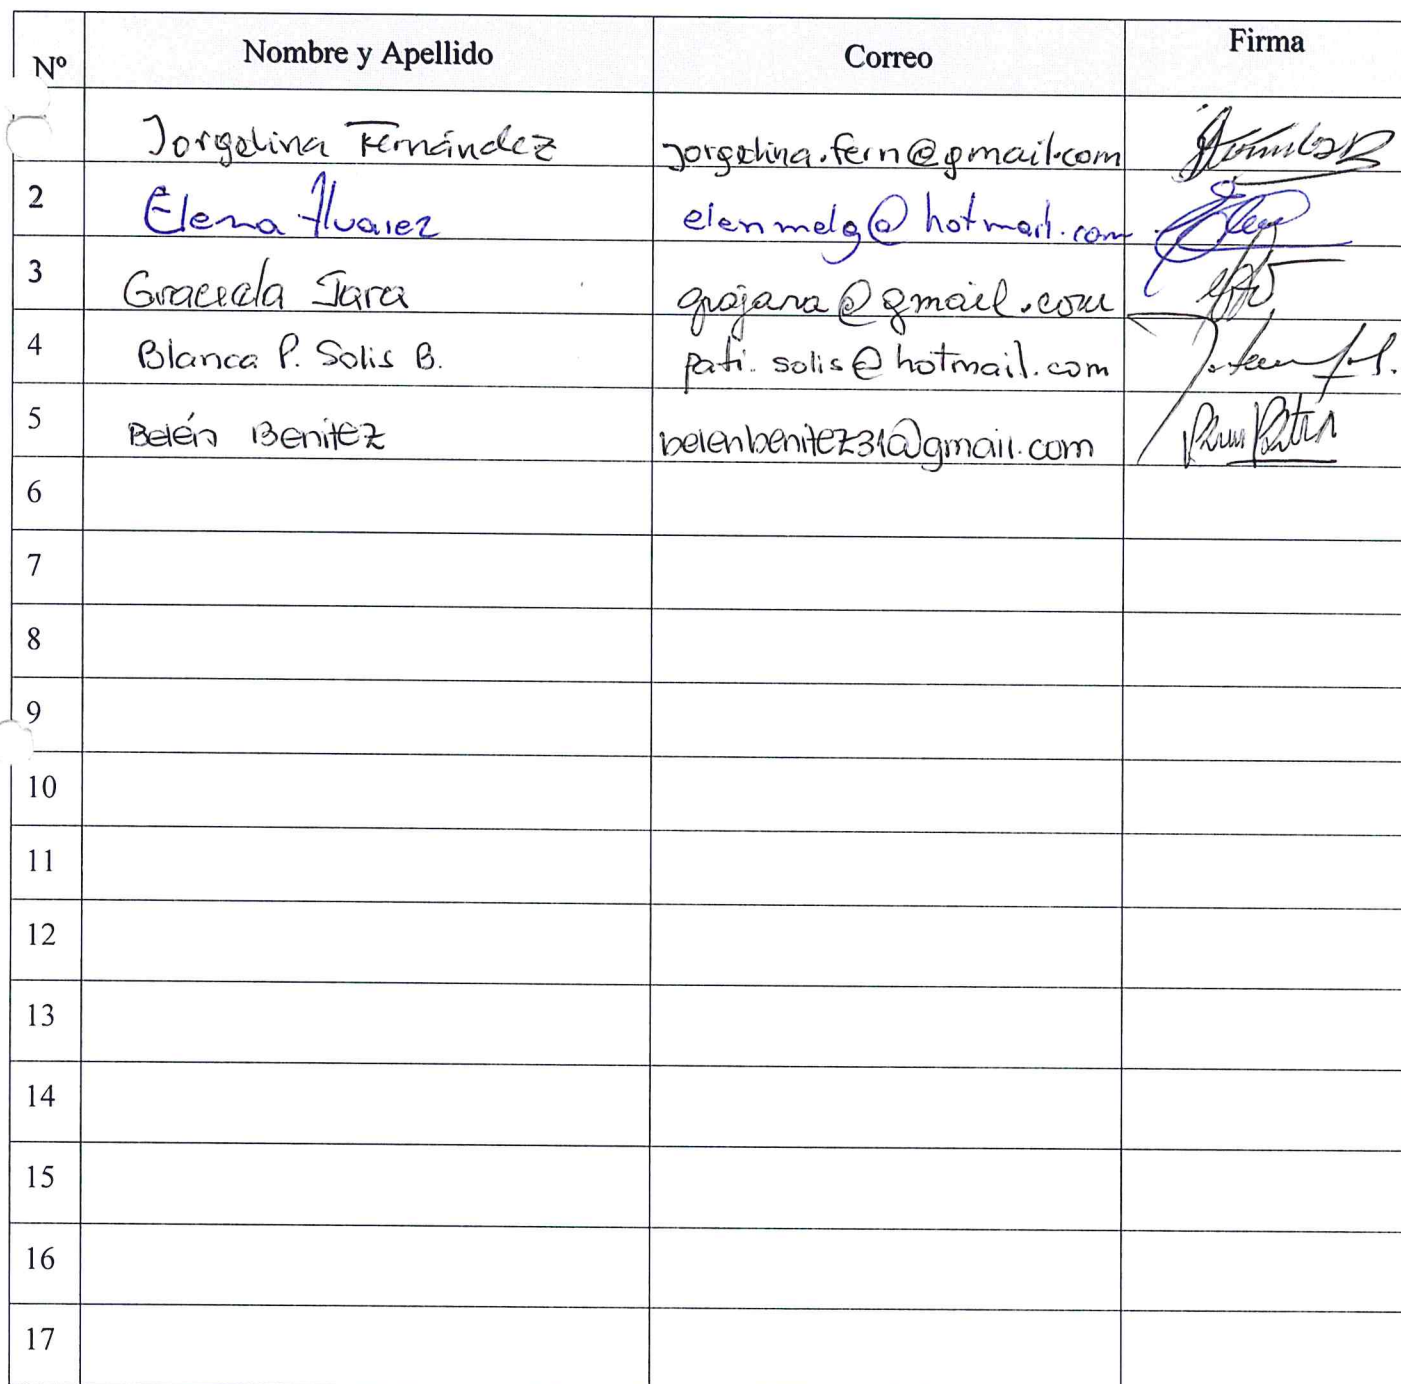 Nº Nombre y Apellido Correo Firma
Jorgelina Fernández jorgelina.fern@gmail.com
2 Elena Álvarez elenmelg@hotmail.com
3 Graciela Jara grajara@gmail.com
4 Blanca P. Solis B. pati.solis@hotmail.com
5 Belén Benitez belenbenitez31@gmail.com
6
7
8
9
10
11
12
13
14
15
16
17